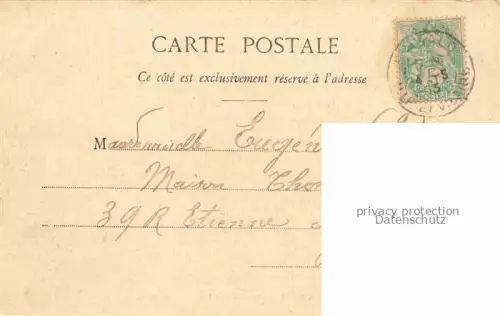 CARTE POSTALE
Ce côté est exclusivement réservé à l'adresse
Mademoiselle Eugén
Maison Tho
39 R Etienne
privacy protection
Datenschutz